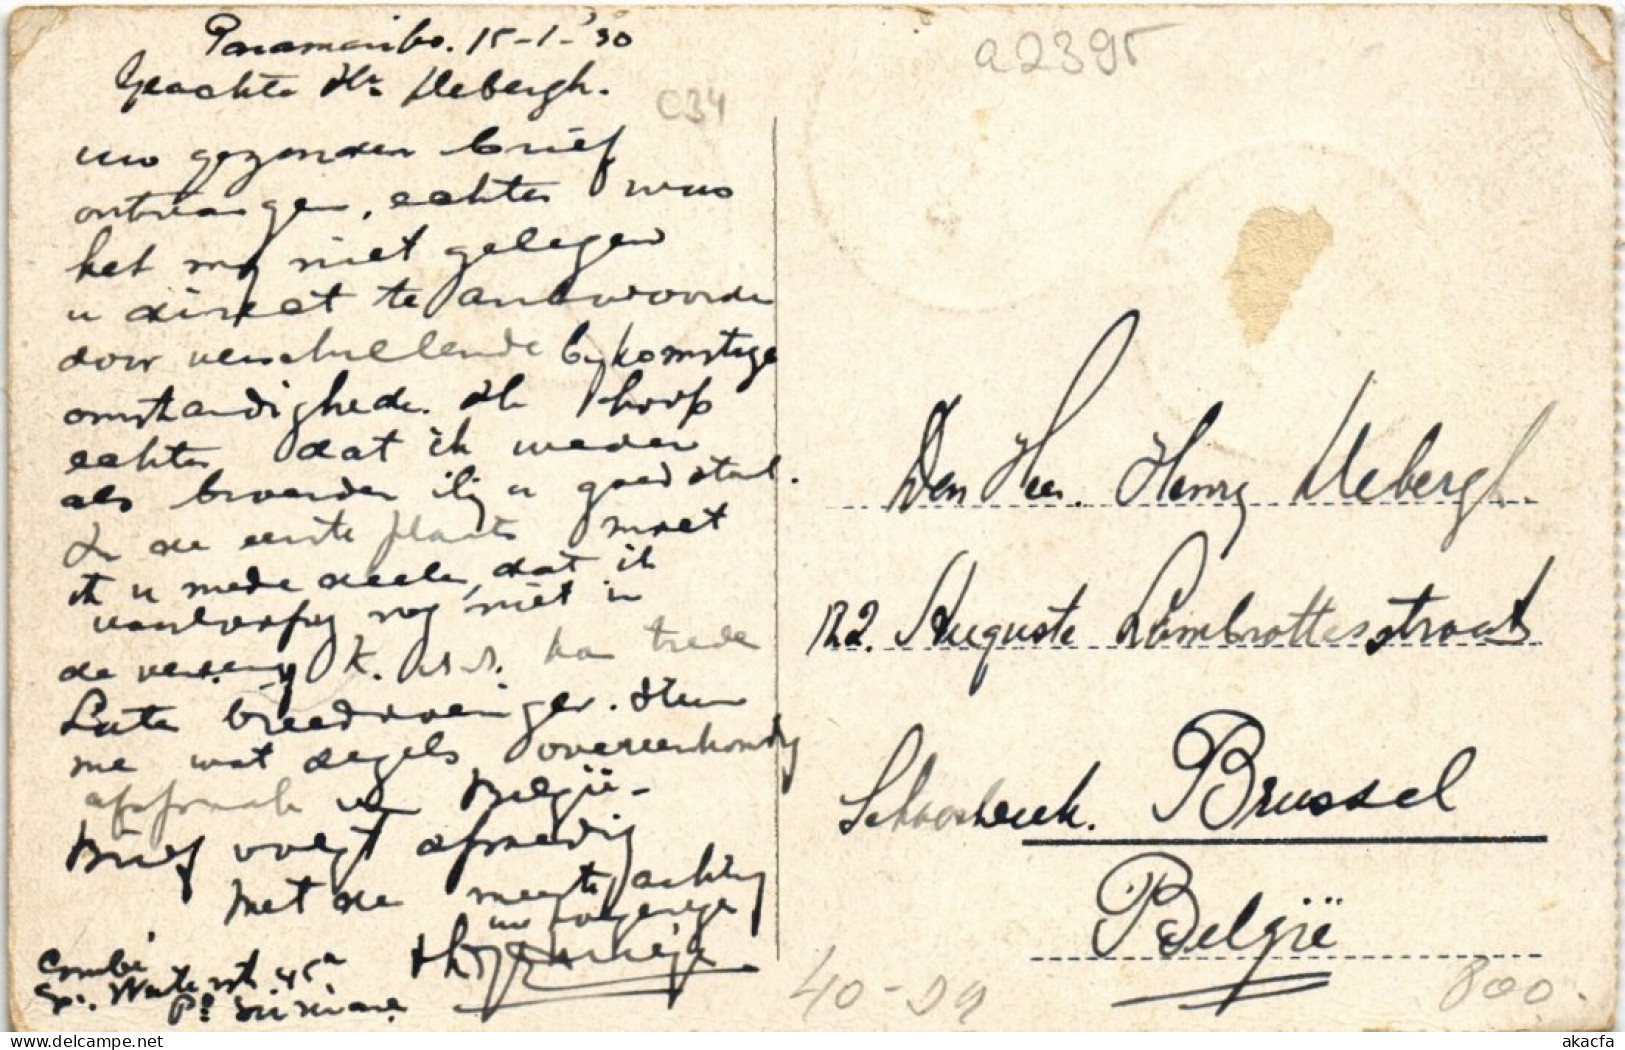 Paramaribo. 15-1-'30
Geachte Hr Uebergh.
uw gezonden brief
ontvangen, echter was
het mij niet gelegen
u direct te antwoorde
door verschillende bijkomstige
omstandighede. Ik hoop
echter dat ik weder
als broeder bij u goed staat.
In de eerste plaats moet
ik u mededeele, dat ik
voorloopig nog niet in
de vereenig K. kan trede
Late
me wat degels overeenkomstig
afspraak van België-
Brief volgt afmedig
Met de meeste achting
uw toegenege
Combé
Gr. Waterstr. 45a
Pbo Suriname
a2395
C34
Den Heer. Henry Uebergh.
122. Auguste Lambrottesstraat
Schaerbeek. Brussel
België
40-99
800.
delcampe.net
akacfa